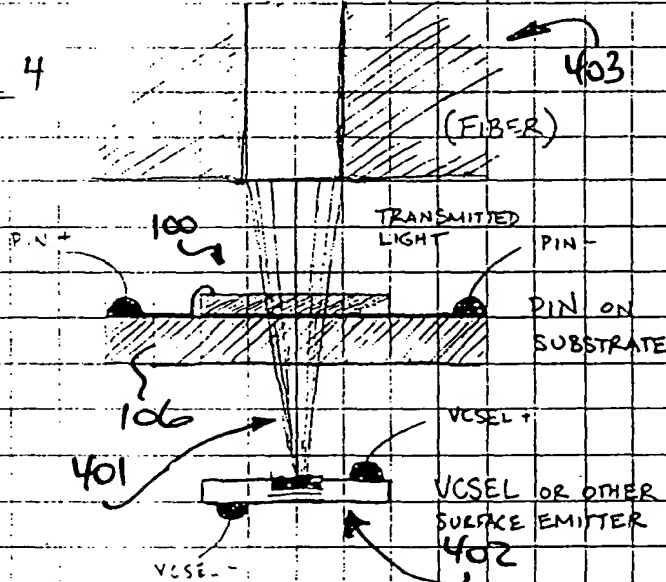 4
403
(FIBER)
TRANSMITTED
LIGHT
100
PIN +
PIN -
PIN ON
SUBSTRATE
106
401
VCSEL +
VCSEL OR OTHER
SURFACE EMITTER
402
VCSEL -